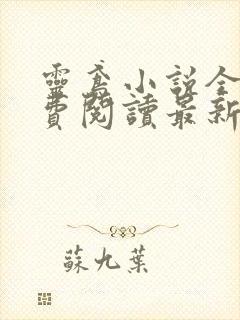 靈鳶小說全
費閱讀最新
蘇九葉